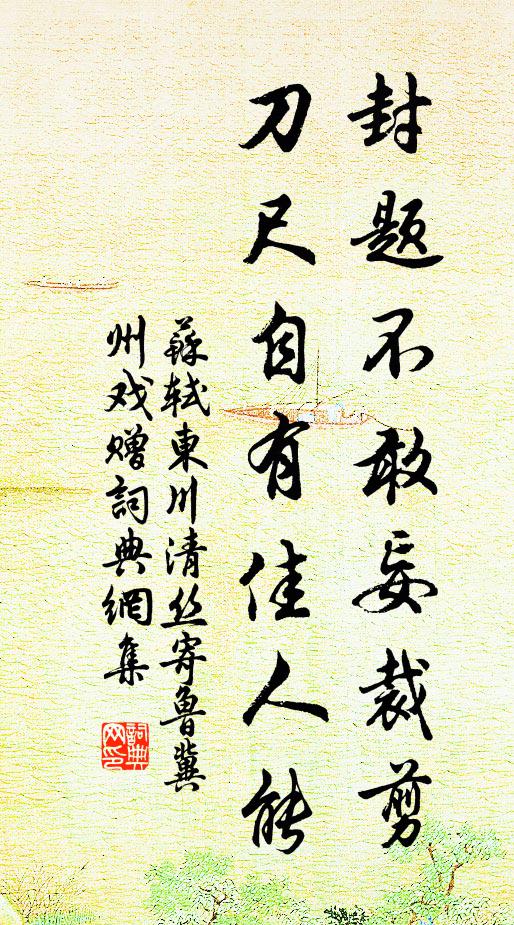 封题不敢妄裁剪
刀尺自有佳人能
蘇軾東川清丝寄魯冀
州戏赠詞典網集
詞典网印